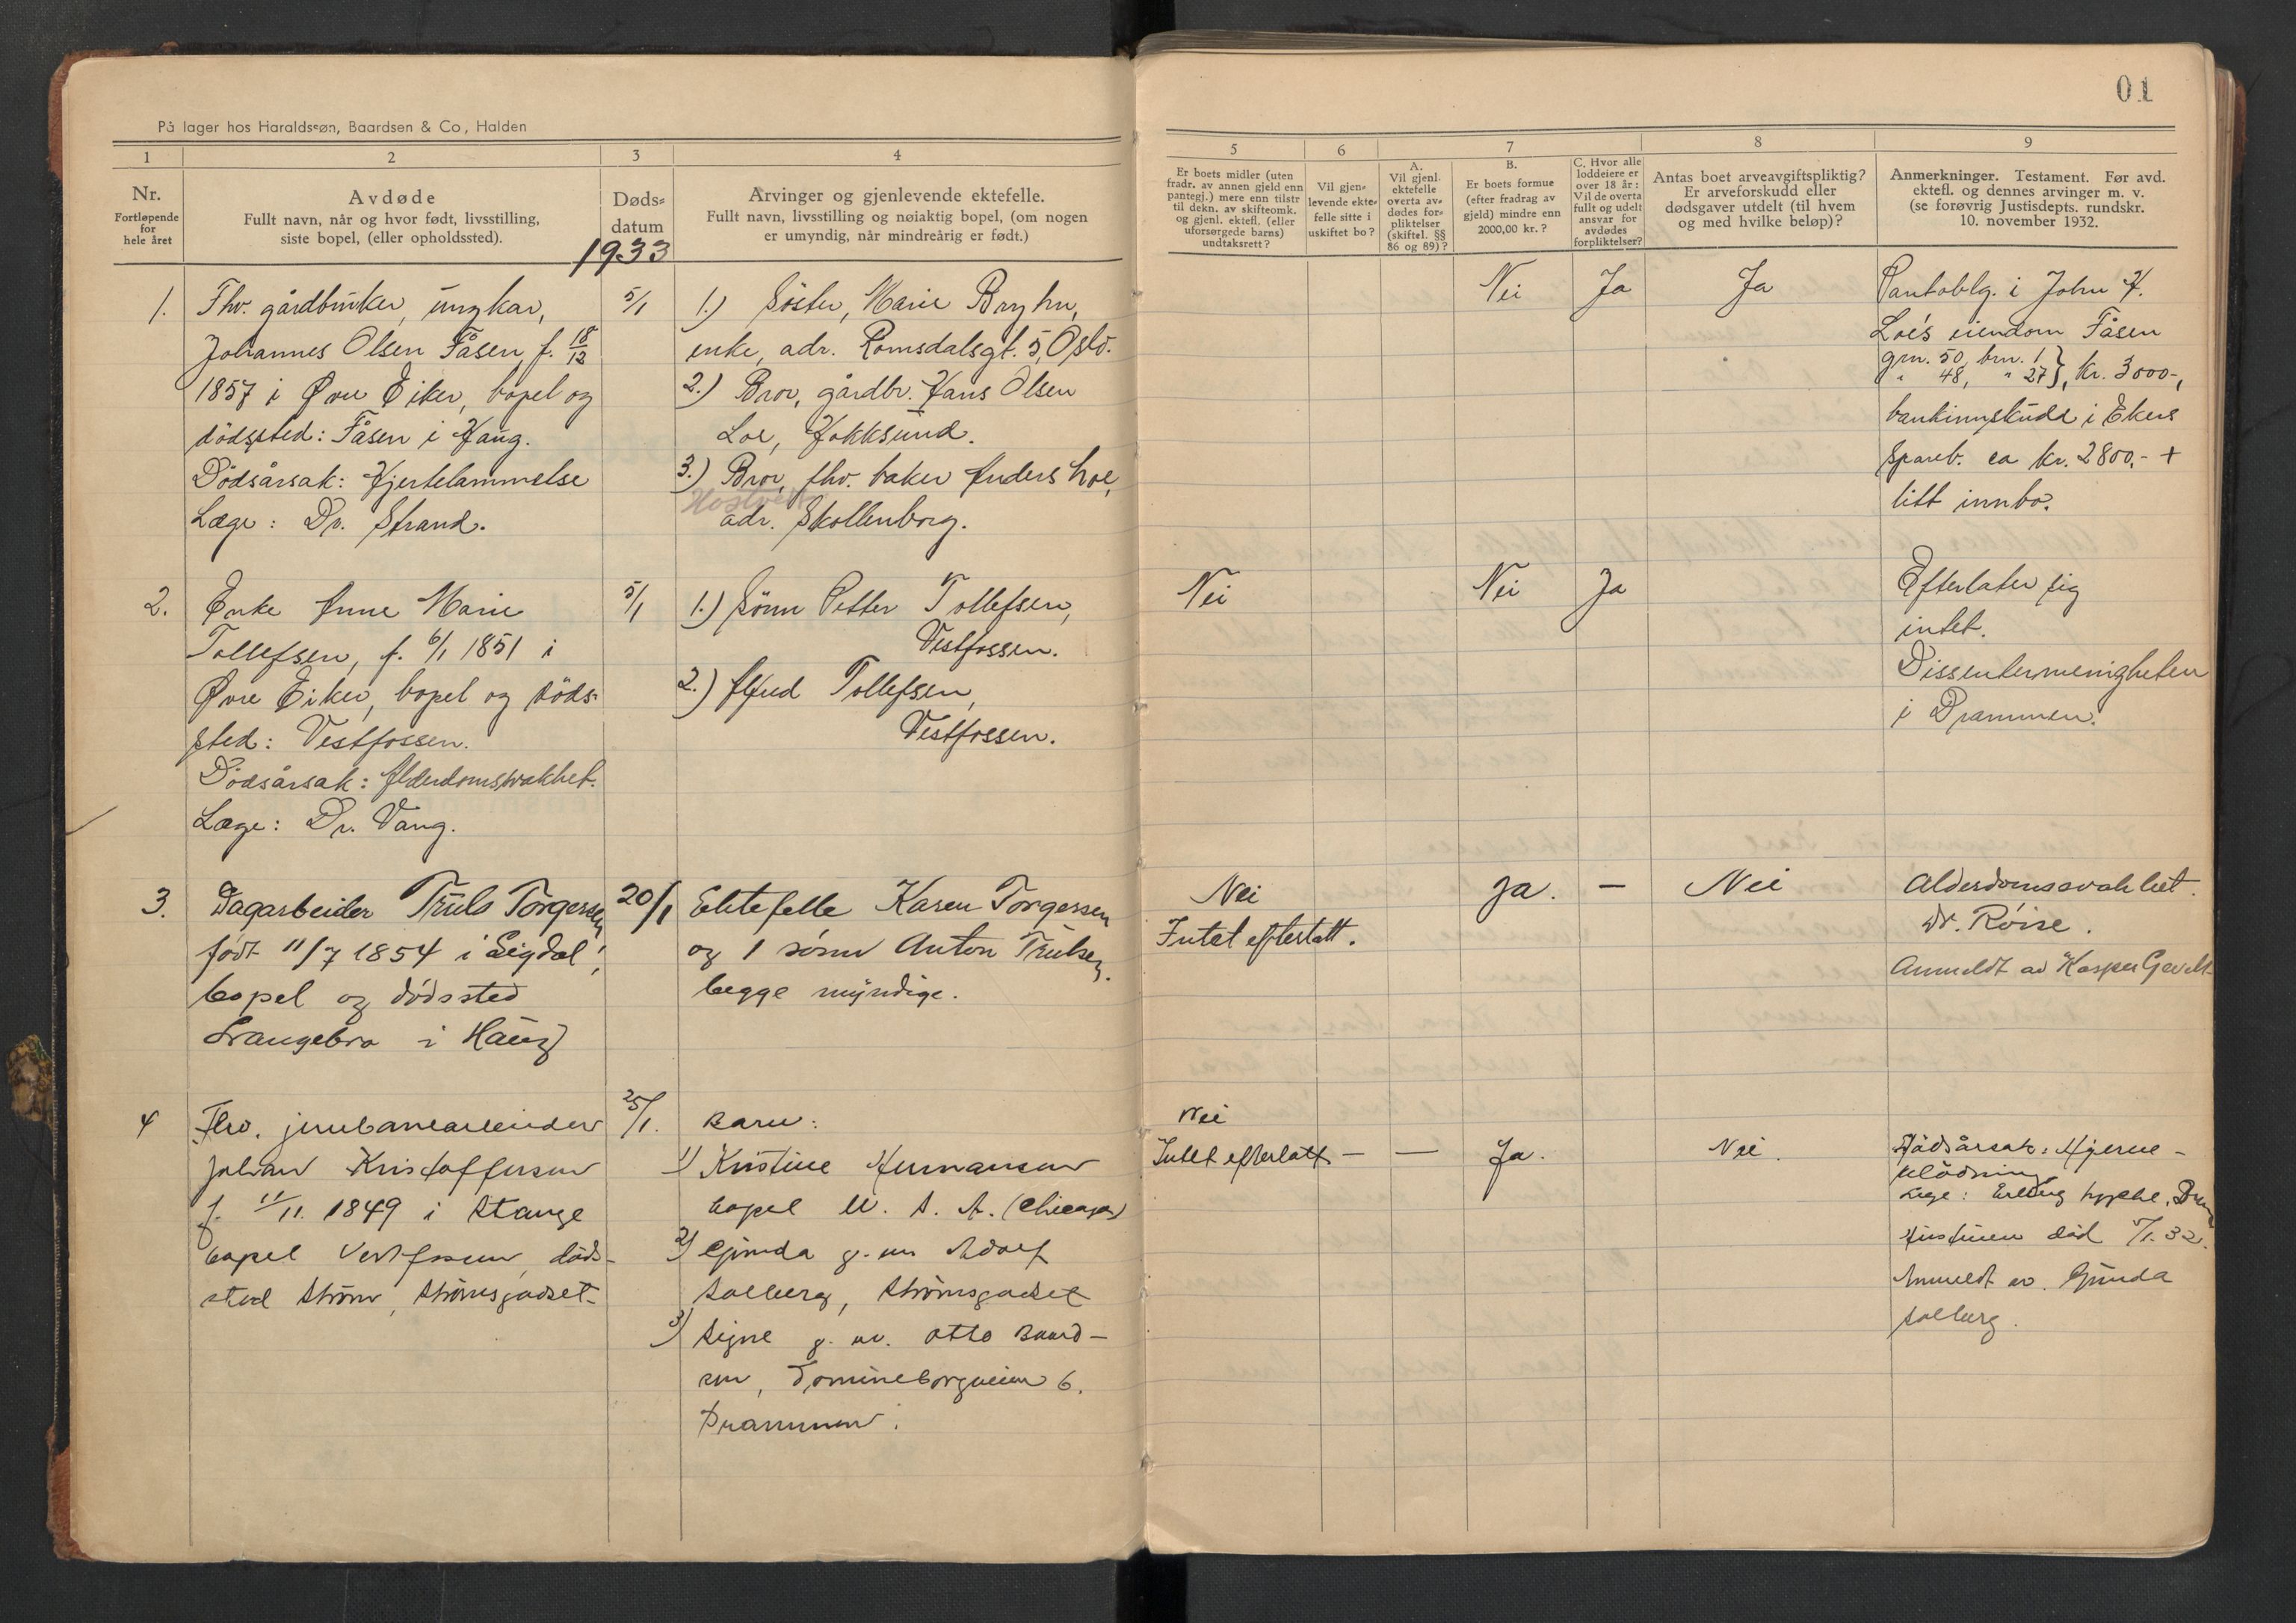 På lager hos Haraldssøn, Baardsen & Co, Halden
01
1 2 3 4
Nr.
Fortløpende
for
hele året
Avdøde
Fullt navn, når og hvor født, livsstilling,
siste bopel, (eller opholdssted).
Døds=
datum
1933
Arvinger og gjenlevende ektefelle.
Fullt navn, livsstilling og nøiaktig bopel, (om nogen
er umyndig, når mindreårig er født.)
5 6 7 8 9
Er boets midler (uten
fradr. av annen gjeld enn
pantegj.) mere enn tilstr
til dekn. av skifteomk.
og gjenl. ektefl. (eller
uforsørgede barns)
undtaksrett?
Vil gjen=
levende ekte=
felle sitte i
uskiftet bo?
A.
Vil gjenl.
ektefelle
overta av=
dødes for=
pliktelser
(skiftel. §§
86 og 89)?
B.
Er boets formue
(efter fradrag av
gjeld) mindre enn
2000,00 kr.?
C. Hvor alle
loddeiere er
over 18 år:
Vil de overta
fullt og udelt
ansvar for
avdødes
forpliktelser?
Antas boet arveavgiftspliktig?
Er arveforskudd eller
dødsgaver utdelt (til hvem
og med hvilke beløp)?
Anmerkninger. Testament. Før avd.
ektefl. og dennes arvinger m. v.
(se forøvrig Justisdepts. rundskr.
10. november 1932.
1.
Fhv. gårdbruker, ungkar,
Johannes Olsen Fåsen, f. 18/12
1857 i Øvre Eiker, bopel og
dödssted: Fåsen i Haug.
Dödsårsak: Hjertelammelse
Læge: Dr. Strand.
5/1
1.) Söster, Marie Bryhn,
enke, adr. Romsdalsgt. 5, Oslo.
2.) Bror, gårdbr. Hans Olsen
Loe, Hokksund.
3.) Bror, fhv. baker Anders Loe,
adr. Skollenborg.
Nei Ja Ja
Pantoblg. i John H.
Loe's eiendom Fåsen
grn. 50, brn. 1
" 48, " 27 }, kr. 3000-,
bankinnskudd i Ekers
Spareb. ca kr. 2800,- +
litt innbo.
2.
Enke Anne Marie
Tollefsen, f. 6/1 1851 i
Øvre Eiker, bopel og döds=
sted: Vestfossen.
Dödsårsak: Alderdomsvakhet.
Læge: Dr. Vang.
5/1
1.) Sönn Petter Tollefsen,
Vestfossen.
2.) Alfred Tollefsen,
Vestfossen.
Nei Nei Ja
Efterlater sig
intet.
Dissentermenigheten
i Drammen.
3.
Dagarbeider Truls Torgersen,
født 11/7 1854 i Sigdal,
bopel og dødssted
Frangebro i Haug
20/1
Ektefelle Karen Torgersen
og 1 sønn Anton Trulsen,
begge myndige.
Nei
Intet efterlatt.
Ja. — Nei
Alderdomssvakhet.
Dr. Røise.
Anmeldt av Kasper
4
Fhv. jernbanearbeider
Johan Kristoffersen
f. 11/11. 1849 i Stange
bopel Vestfossen, døds-
sted Strøm, Strømsgodset.
25/1.
Barn:
1) Kristine Hermansen
bopel U. S. A. (Chicago)
2) Gunda g. m. Adolf
Solberg, Strømsgodset
3) Signe g. m. Otto Baard-
sen, Tomineborgveien 6.
Drammen.
Nei
Intet efterlatt — — Ja. Nei.
Dødsårsak: Hjerne-
blödning
Læge: Erling
Hustruen död 5/1. 32.
Anmeldt av Gunda
Solberg.